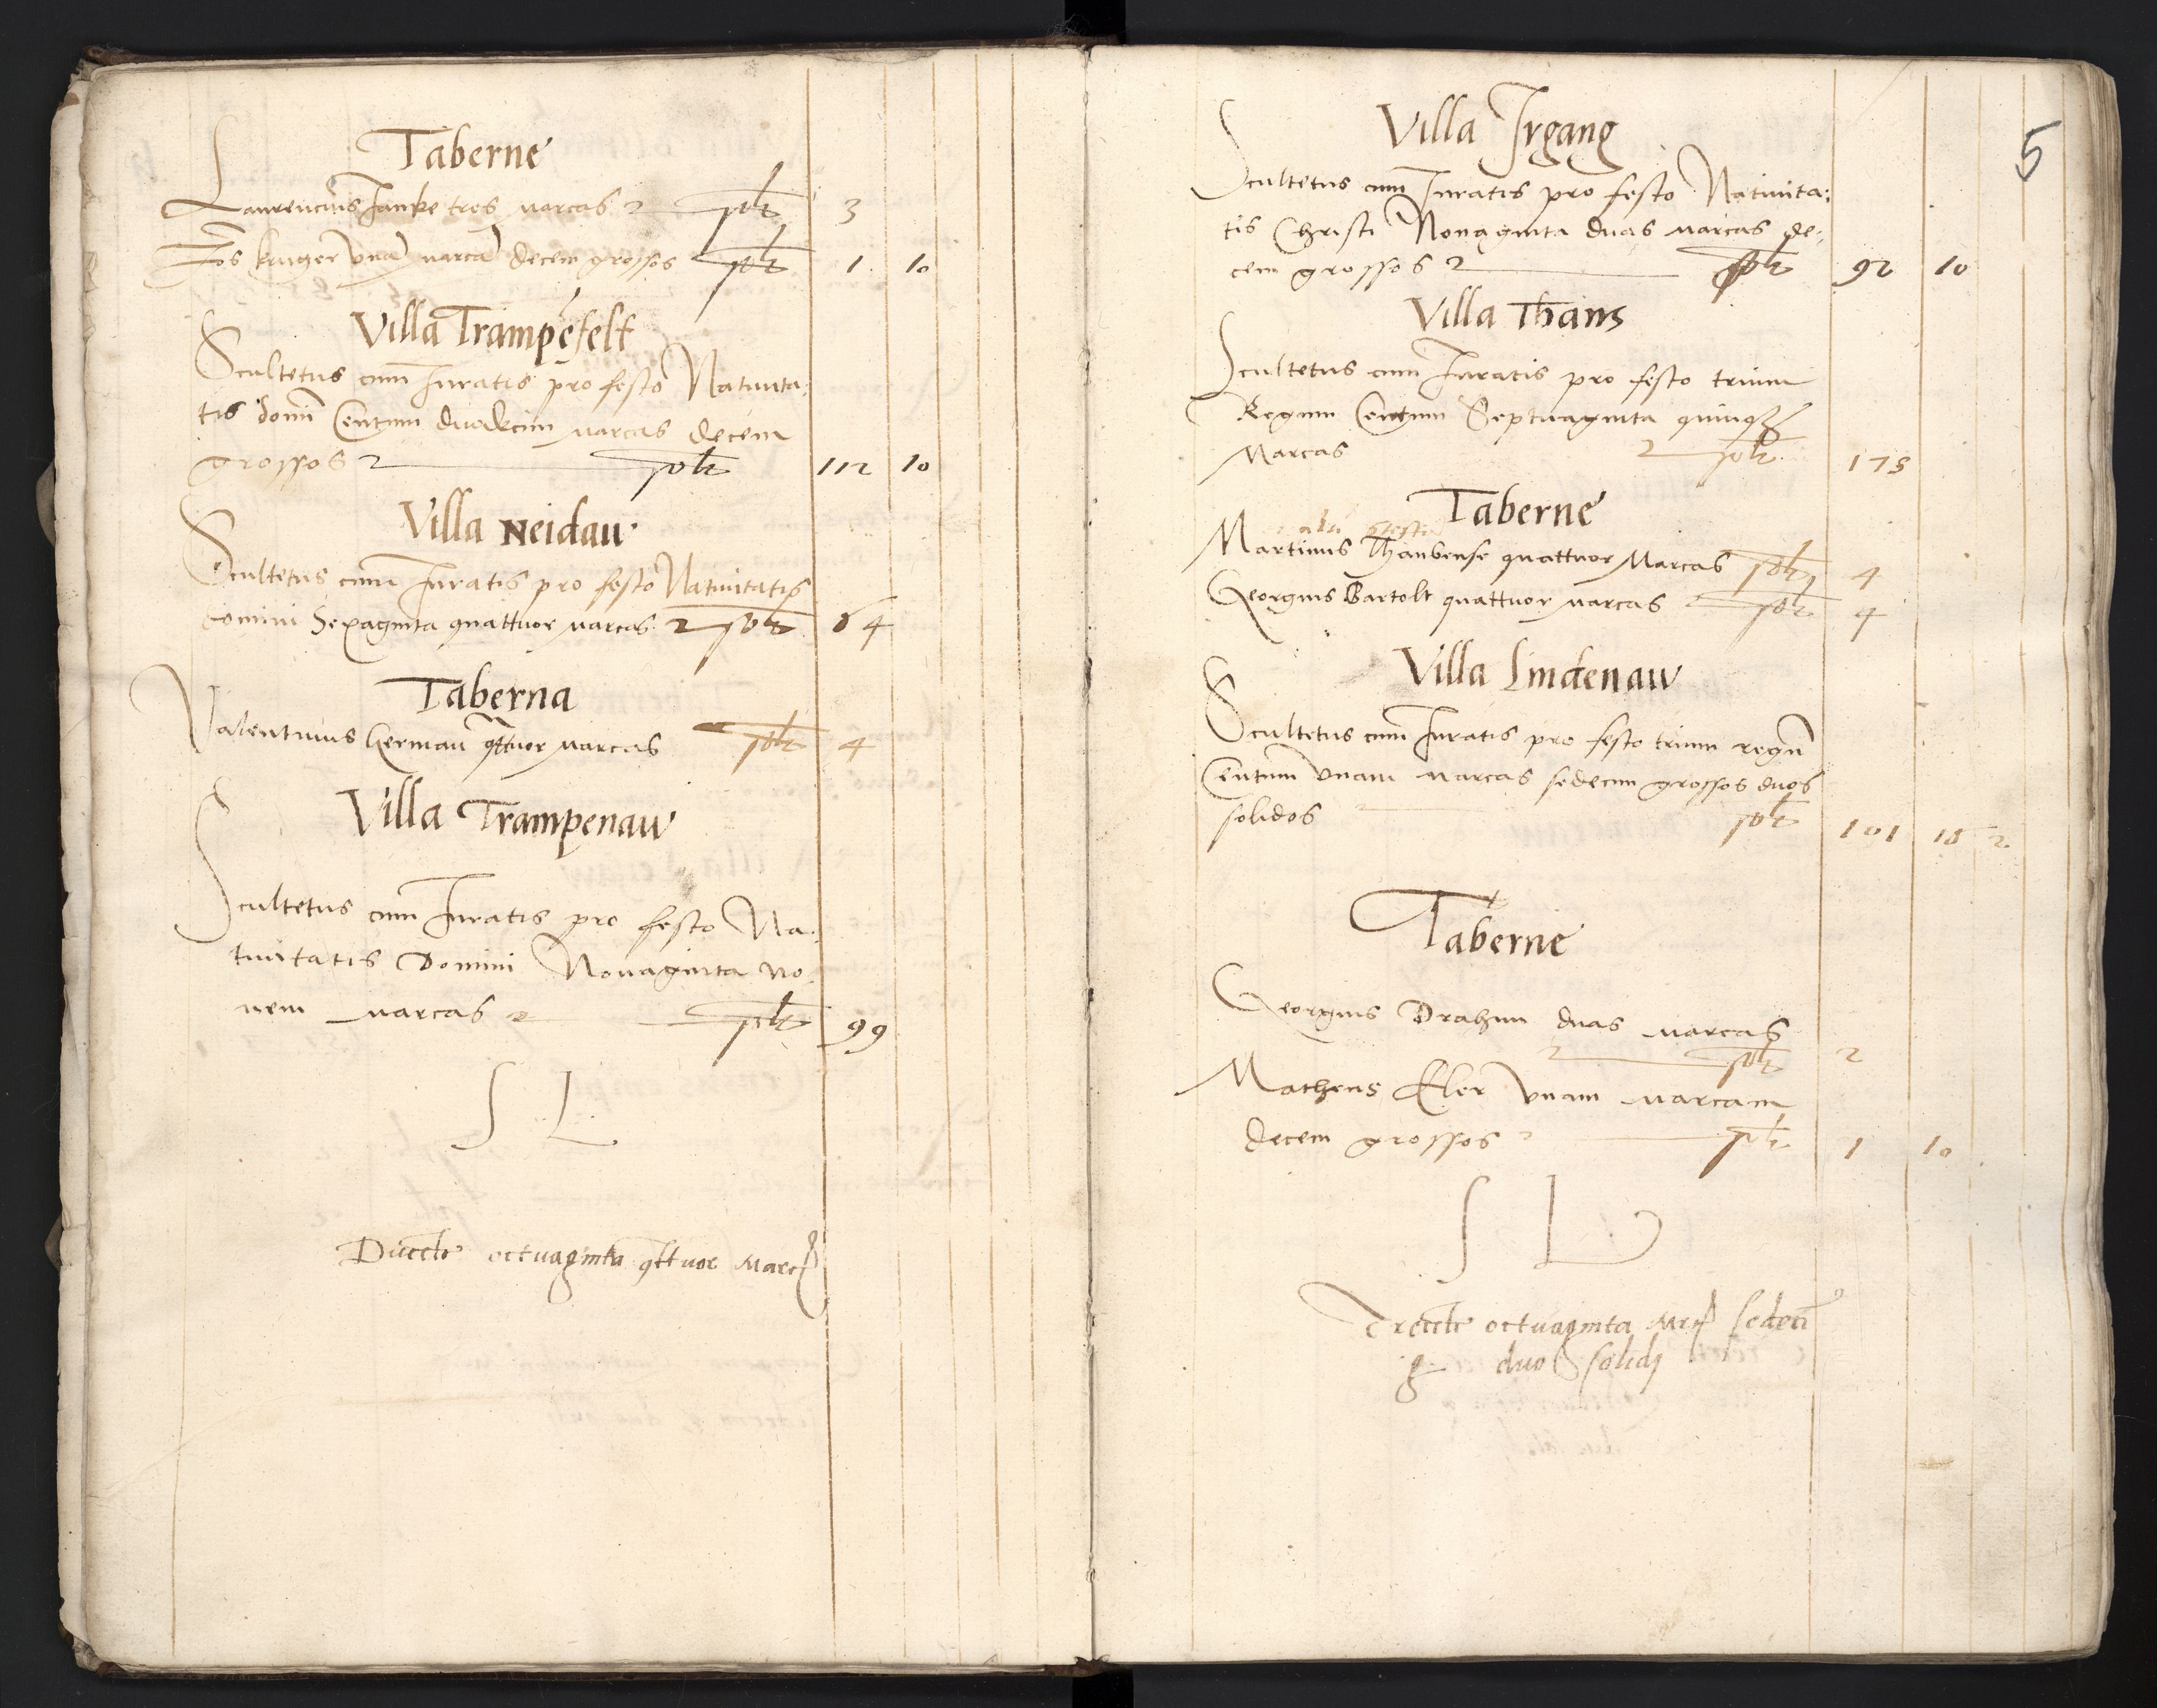 Taberne
Laurencius Janke tres marcas 2 solt 3
Jos kruger vna marca decem grossos solt 1 10
Villa Trampefelt
Scultetus cum Juratis pro festo Natiuita:
tis domi Centum duodecim marcas decem
grossos 2 solt 112 10
Villa Neidau
Scultetus cum Juratis pro festo Natiuitatis
domini Sexaginta quattuor marcas 2 solt 64
Taberna
Valentinus Herman qttuor marcas solt 4
Villa Trampenaw
Scultetus cum Juratis pro festo Na:
tiuitatis Domini Nonaginta no
uem marcas 2 solt 99
S L
Ducete octuaginta qttuor Marc
5
Villa Irgang
Scultetus cum Juratis pro festo Natiuita:
tis Christi Nonaginta duas marcas de:
cem grossos 2 solt 92 10
Villa Thans
Scultetus cum Juratis pro festo trium
Regum Centum Septuaginta quinq
Marcas 2 solt 175
Taberne
Martinus Thansense quattuor Marcas solt 4
Georgius Bartolt quattuor marcas solt 4
Villa Lindenaw
Scultetus cum Juratis pro festo trium regu
Centum vnam marcas sedecim grossos duos
solidos solt 101 16 2
Taberne
Georgius Drahim duas marcas
2 solt 2
Matheus Eler vnam marcam
decem grossos 2 solt 1 10
S L
Trecete octuaginta Mrc sedeci
g duo solidi